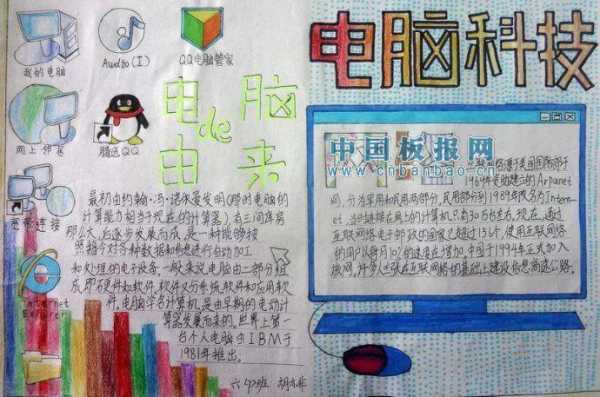 我的电脑
Audio(I)
QQ电脑管家
网上邻居
腾迅QQ
宽带连接
Internet
Explorer
电脑
de
由来
最初由约翰·冯·诺依曼发明(那时电脑的
计算能力相当于现在的计算器)有三间库房
那么大,后逐步发展而成,是一种能够按
照指令对各种数据和信息进行自动加工
和处理的电子设备,一般来说电脑由二部分组
成即硬件和软件,软件又分系统软件和应用软
件,电脑学名计算机,是由早期的电动计
算器发展而来的。世界上第一
台个人电脑由IBM于
1981年推出。
六(2)班
电脑科技
中国板报网
www.cnbanbao.cn
1969年始建立的Arpanet
网,分为军用和民用两部分,民用部分到1989年改名为Inter-
net,当时连接在网上的计算机只有30万台左右,现在,通过
互联网络电子邮政的国家已超过136个,使用互联网络
的用户以每月10%的速度在增加,中国于1994年正式加入